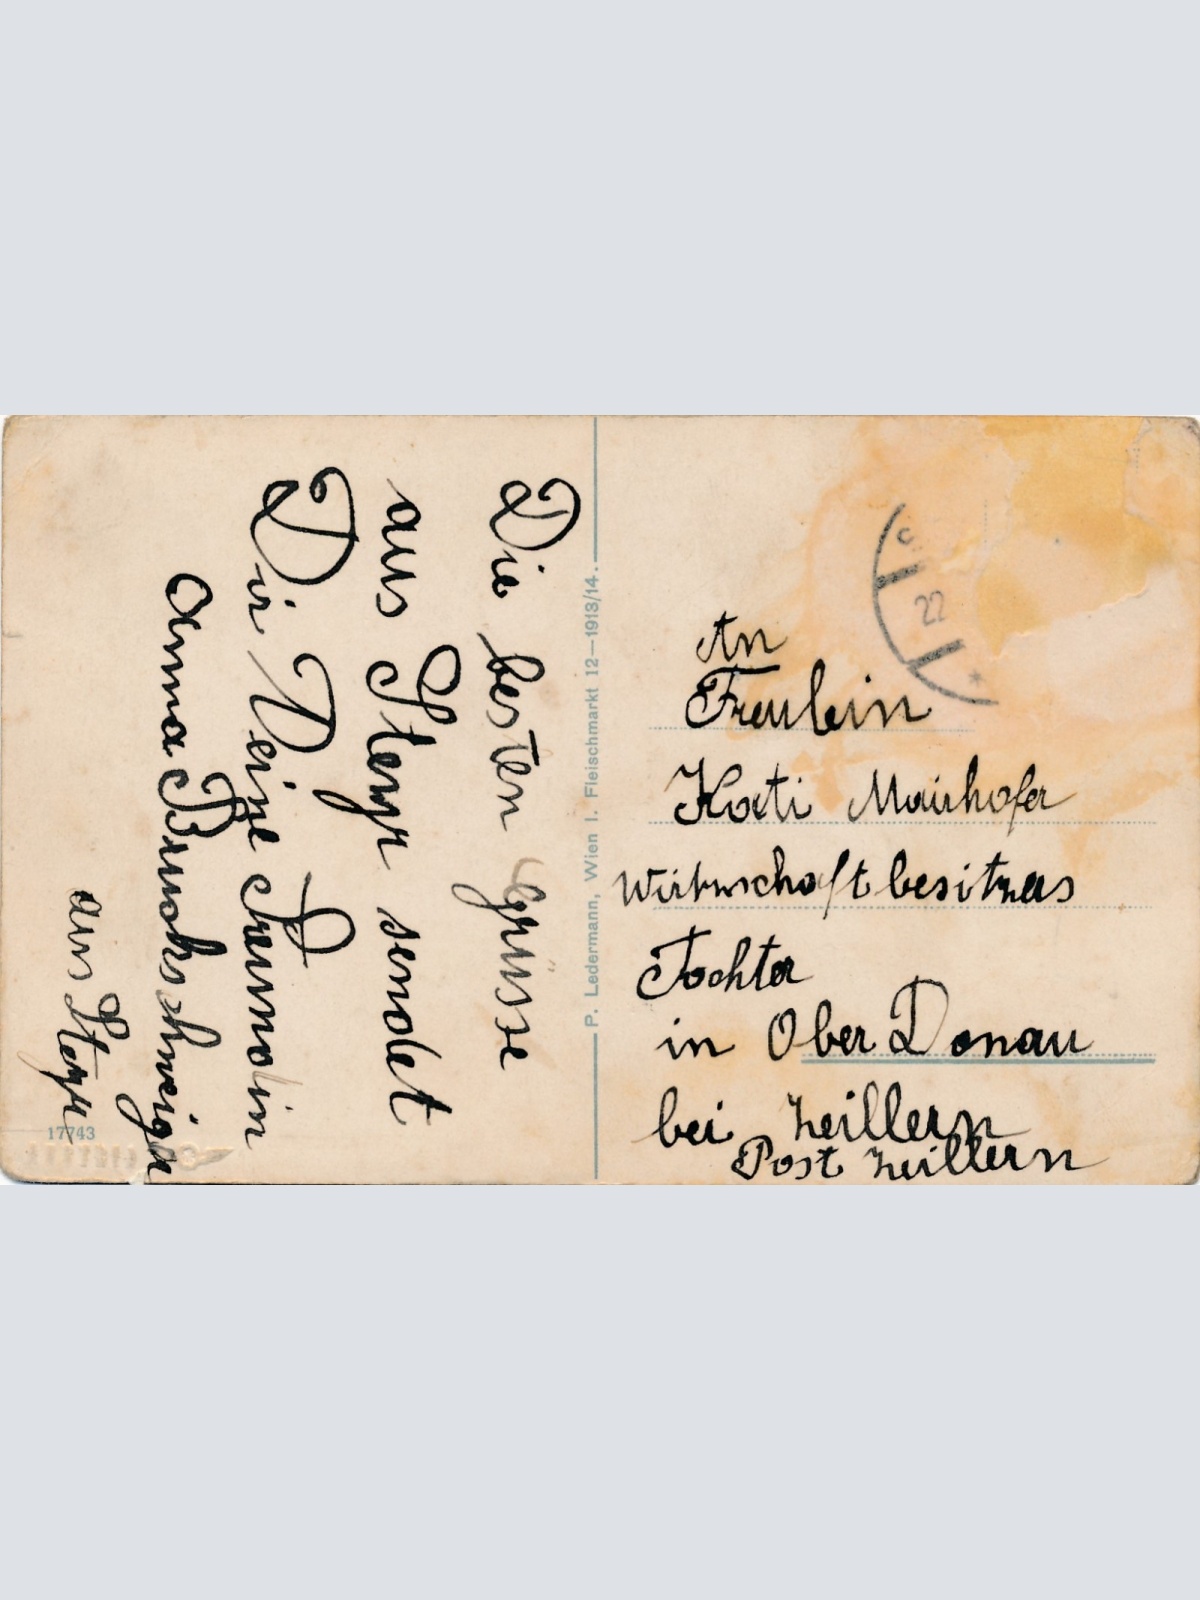 Die besten Grüsse
aus Steyr sendet
Dir Deine Freundin
Anna
aus Steyr
17743
P. Ledermann, Wien I. Fleischmarkt 12—1913/14.
22
An
Freulein
Kati Mairhofer
Wirtwschaftbesitzers
Tochter
in Ober Donau
bei Zeillern
Post Zeillern